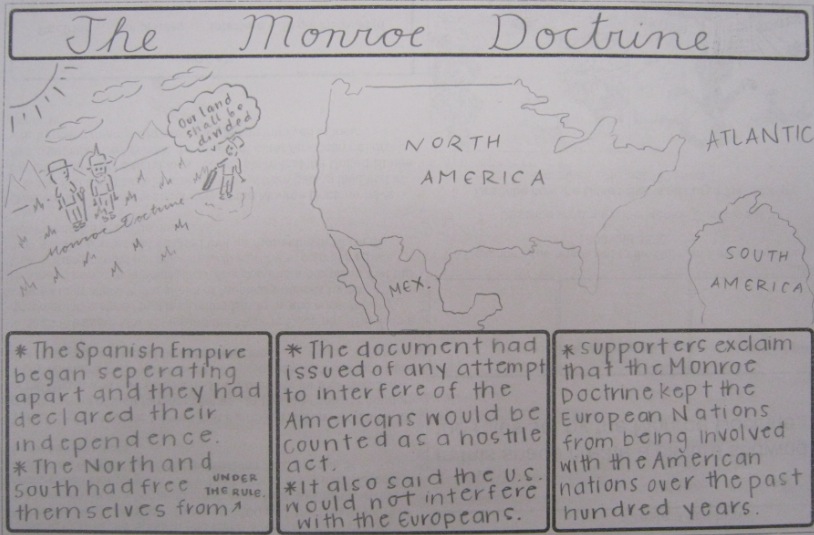 The Monroe Doctrine
Our land
shall be
divided
Monroe Doctrine
NORTH
AMERICA
ATLANTIC
SOUTH
AMERICA
MEX.
* The Spanish Empire
began seperating
apart and they had
declared their
independence.
* The North and
South had free UNDER
THE RULE.
themselves from↗
* The document had
issued of any attempt
to interfere of the
Americans would be
counted as a hostile
act.
*It also said the U.S.
would not interfere
with the Europeans.
* Supporters exclaim
that the Monroe
Doctrine kept the
European Nations
from being involved
with the American
nations over the past
hundred years.